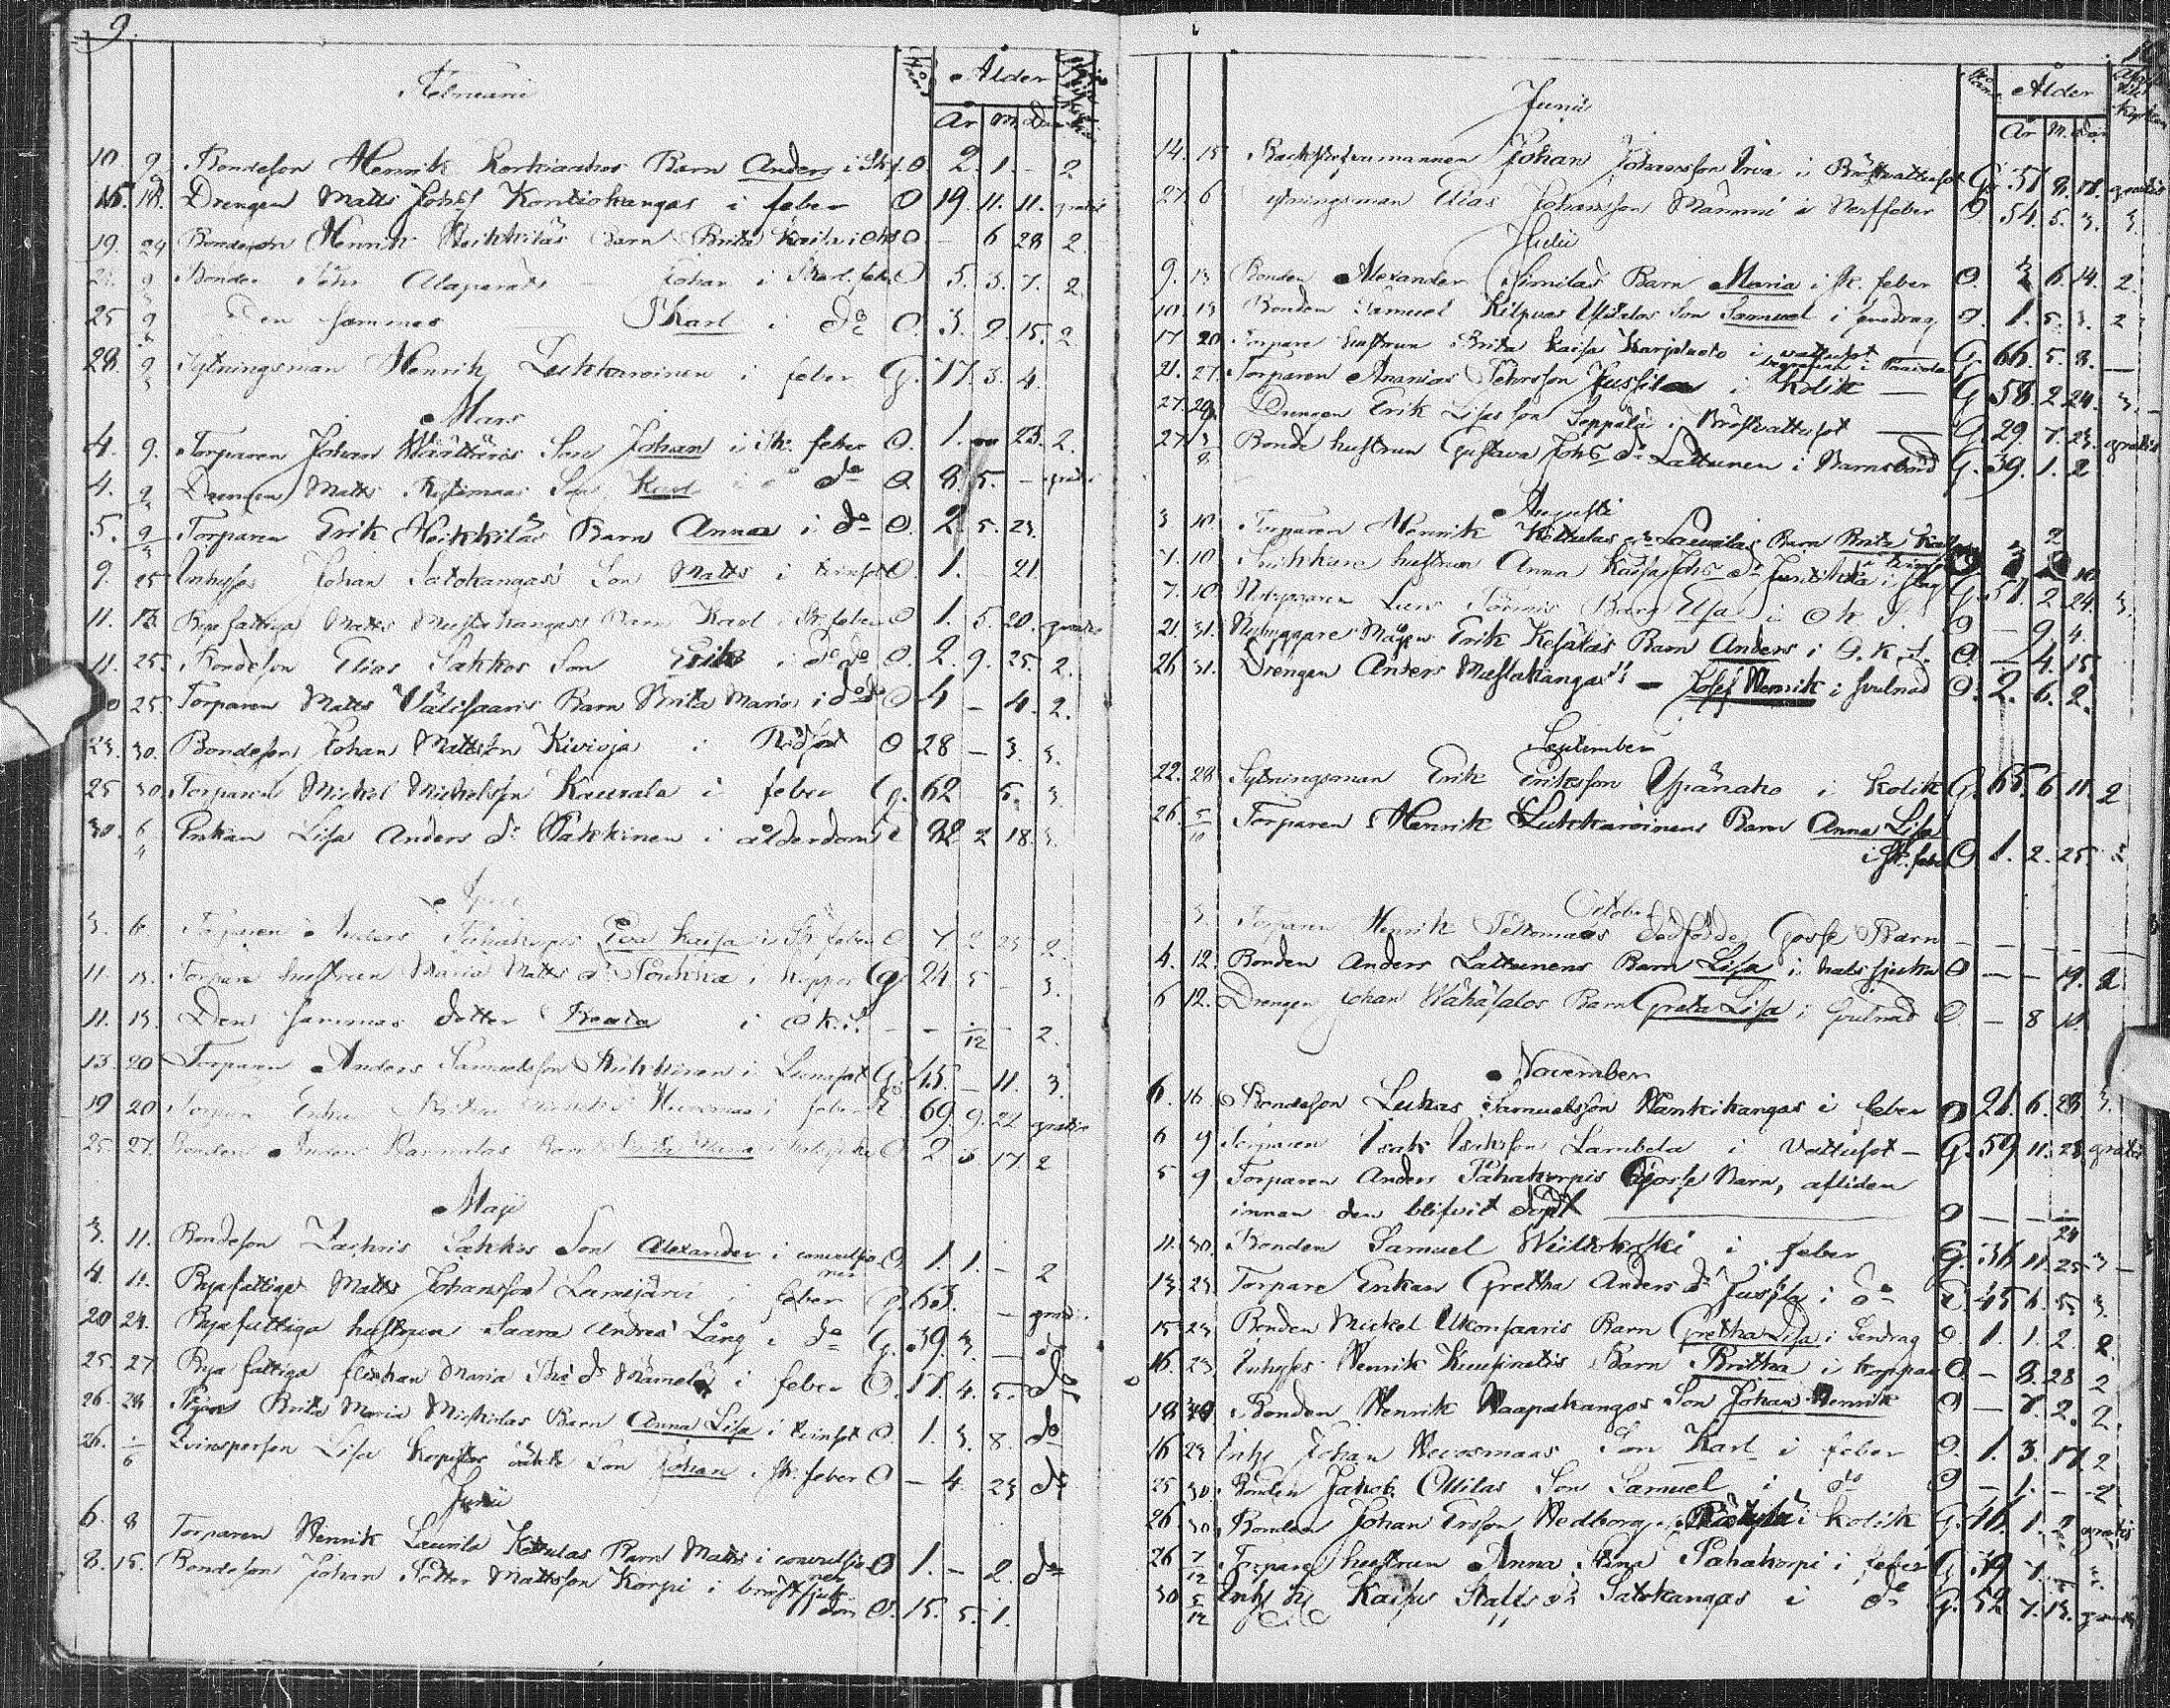 9.
Februarii
Ålder
År M. Dar
10. 9 Bondeson Henrik Korkiaahos Barn Anders i Sk.f. O. 2. 1. - 2
16. 18. Drengen Matts Johsf Kontiokangas i feber O 19. 11. 11. gratis
19. 24 Bondeson Henrik Heikkiläs Barn Brita Kaisa i O. - 6 28 2
9 Bonden Alaperäs Johan i Skarl. feb. O 5. 3. 7. 2
25 9 Den sammes Karl i do O. 3. 9. 15. 2
28. 9 Sytningsman Henrik Lukkaroinen i feber G. 77. 3. 4.
Mars
4. 9. Torparen Johan Määttäris Son Johan i Sk. feber O. 1. 23. 2.
4. 9 Drengen Matts Son Karl i do O 8. 5. - gratis
5. 9 Torparen Erik Heikkiläs Barn Anna i do O. 2. 5. 23.
9. 25 Inhyses Johan Satokangas Son Matts i tvinsot O. 1. 21.
11. 13. Byafattiga Matts Mustakangas Barn Karl i Sk. feber O 1. 5. 20. gratis
11. 25. Bondeson Elias Sakkos Son Erik i do do O. 2. 9. 25. 2.
25 Torparen Matts Välisaaris Barn Brita Maria i do do O 4 - 4. 2.
23. 30. Bondeson Johan Mattsson Kivioja i Rödsot O 28 - 3. 3.
25 30 Torparen Mickel Mickelsson Kaurala i feber G. 62 - 5. 3
30. 6 Enkan Lisa Anders dr Pakkinen i ålderdom E 82 2 18. 3.
April
3. 6 Torparen Anders Pahakorpis Eva Kaisa i Sk. feber O 7 2 23 2.
11. 13. Torpare hustrun Maria Matts dr i koppor G 24 5 - 3.
11. 13. Den sammas dotter Beata i ok. s. - - - 2.
13. 20 Torparen Anders Samuelsson Kukkonen i Lungsot G 45. - 11. 3.
19 20 Torpare Enka Brita i feber E 69. 9. 22 gratis
25. 27. Bonden Anders Hannulas Barn Brita Maria i halssjuka O. 2 3 17 2
Maji
3. 11. Bondeson Zachris Sakkos Son Alexander i convulsio- O. 1. 1. - 2
ner
4. 11. Byafattiga Matts Johansson Lamujärvi i feber G. 63. - gratis
20 24. Byafattiga hustrun Saara Andres Lång i do G. 39. 3. - do
25. 27 Byafattiga flickan Maria dr Hämälä i feber O. 17. 4. 5. do
26. 28 Pigan Brita Maria Mickelas Barn Anna Lisa i tvinsot O. 1. 3. 8. do
26. 1/6 Qvinsperson Lisa oäkta Son Johan i Sk. feber O - 4. 23 do
Junii
6. 8 Torparen Henrik Laurila Kettulas Barn Matts i convulsio- O 1. - 2. do
ner
8. 15. Bondeson Johan Petter Mattsson Korpi i bröstsjuk-
dom O. 15. 5. 1.
10
Junii
Ålder
År M. Dar
14. 15 Backstugumannen Johan Johansson Orva i Bröstvattusot G. 51 8. 18. gratis
27. 6 Sytningsman Elias Johansson Mämmi i Nerffeber O 54. 5. 3. 3.
Julii
9. 13 Bonden Alexander Similäs Barn Maria i Sk. feber O. 6. 14. 2.
10. 13 Bonden Samuel Kilpuas Son Samuel i sendrag O. 1. 5. 3. 2
17 20 Torpare hustrun Brita Kaisa Karjaluoto i vattusot G. 66. 5. 8. -
21. 27. Torparen Ananias Pehrsson Jussila i Kolik - G. 58. 2. 24. 3.
27. 29. Drengen Erik Lisas son Seppälä i Bröstvattusot - G. 29. 7. 23. gratis
27 3/8 Bonde hustrun Gustava Johs dr Lattunen i Barnsbörd G. 39. 1. 2
Augusti
3 10 Torparen Henrik Kettulas Laurilas Barn Brita Kaisa
7. 10 hustrun Anna Kaisa Johs dr Junttila i slag G. 51. 2. 24. 3.
7. 10 Nybyggaren Lars Barn Elsa i Ok. S. O - 9. 4.
21. 31. Nybyggare Mågen Erik Kesäläs Barn Anders i O. K. S. O. - 4. 15.
26 31. Drengen Anders Mustakangas - Josef Henrik i svulnad O. 2. 6. 2.
September
22. 28 Sytningsman Erik Eriksson Ypänaho i Kolik G. 65. 6. 11. 2
26. 5/10 Torparen Henrik Lukkaroinens Barn Anna Lisa
i Sk. feber O. 1. 2. 25. 2
October
3. Torparen Henrik Peltomaas dödfödde Gosse Barn - - - -
4. 12. Bonden Anders Lattunens Barn Lisa i halssjuka O - - 19. 2.
6 12. Drengen Johan Wähäsalos Barn Greta Lisa i Svulnad O. - 8 11.
November
6. 16 Bondeson Lukas Samuelsson Hankikangas i feber O 21. 6. 28 3.
6 9 Torparen Isak Isaksson Lambela i Vattusot - G. 59. 11. 23. gratis
5 9 Torparen Anders Pahakorpis Gosse Barn, afliden
innan den blifvit döpt - O - - -
11. 30. Bonden Samuel Weittokoski i feber G. 36 11. 25 3 -
13. 23. Torpare Enkan Gretha Anders dr Jussila i do E. 45 6. 5. 3.
15 23 Bonden Mickel Ukonsaaris Barn Gretha Lisa i Sendrag O 1. 1. 2. 2.
16. 23 Inhyses Henrik Kuusinetis Barn Britha i koppor O - 8. 28 2
18 30 Bonden Henrik Haapakangas Son Johan Henrik O - 7. 2. 2.
16 23 Inhs Johan Nevosmaas Son Karl i feber O. 1. 3. 17. 2
25 30. Bonden Jakob Ollilas Son Samuel i do O - 1. - 2
26. 30. Bonden Johan Ersson Hedborg i kolik G. 46. 1. 2 gratis
26 7/12 Torpare hustrun Anna Stina Pahakorpi i feber G. 39 7.
30 5/12 Inhs hs Kaisa Matts dr Satokangas i do G. 52 7. 13. gratis